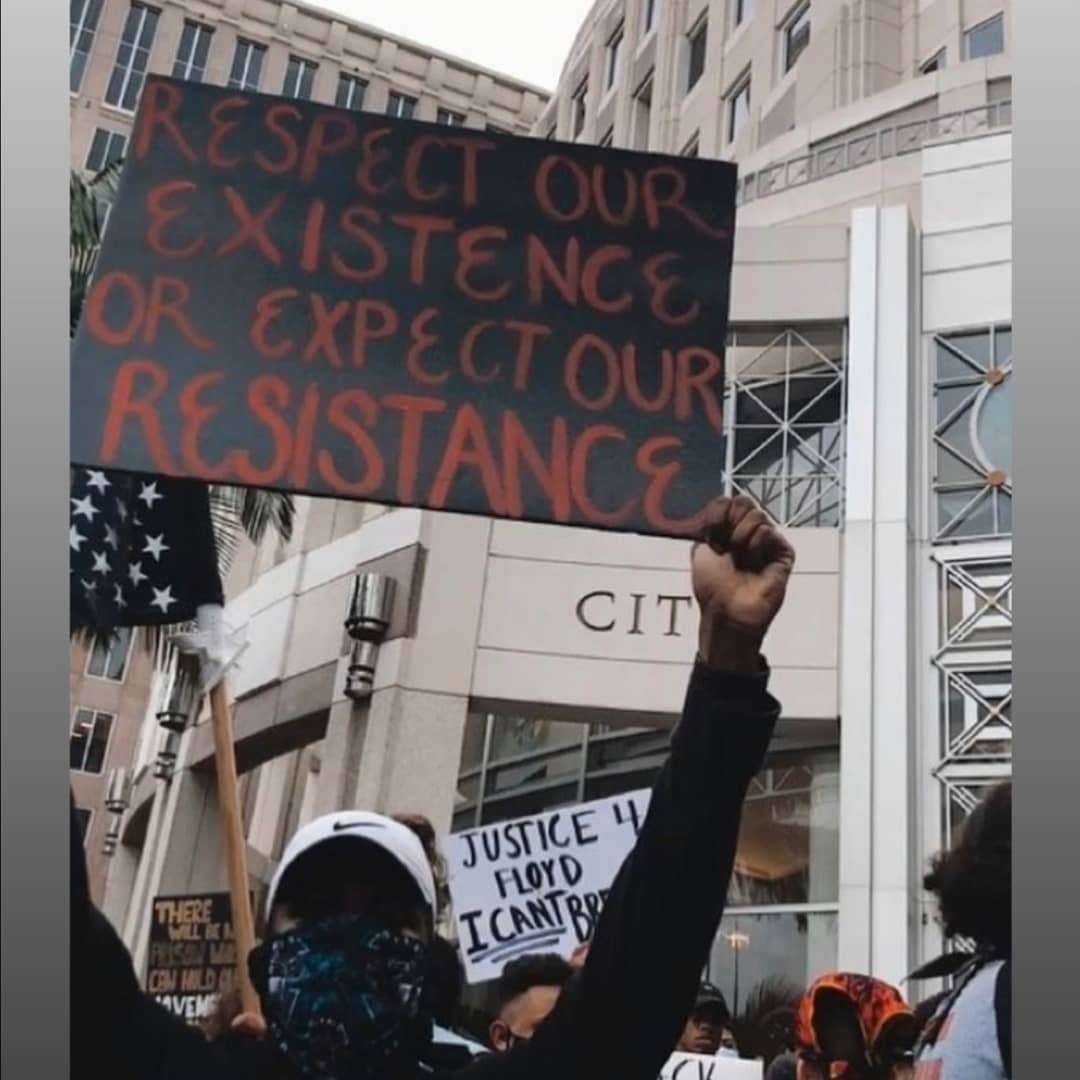 RESPECT OUR
EXISTENCE
OR EXPECT OUR
RESISTANCE
CIT
JUSTICE 4
FLOYD
I CANT BRE
THERE
WILL BE N
PRISON WA
CAN HOLD O
MOVEM